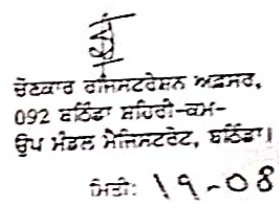 ਚੋਣਕਾਰ ਰਜਿਸਟਰੇਸ਼ਨ ਅਫ਼ਸਰ,
092 ਬਠਿੰਡਾ ਸ਼ਹਿਰੀ-ਕਮ-
ਉਪ ਮੰਡਲ ਮੈਜਿਸਟਰੇਟ, ਬਠਿੰਡਾ।
ਮਿਤੀ: 19-08